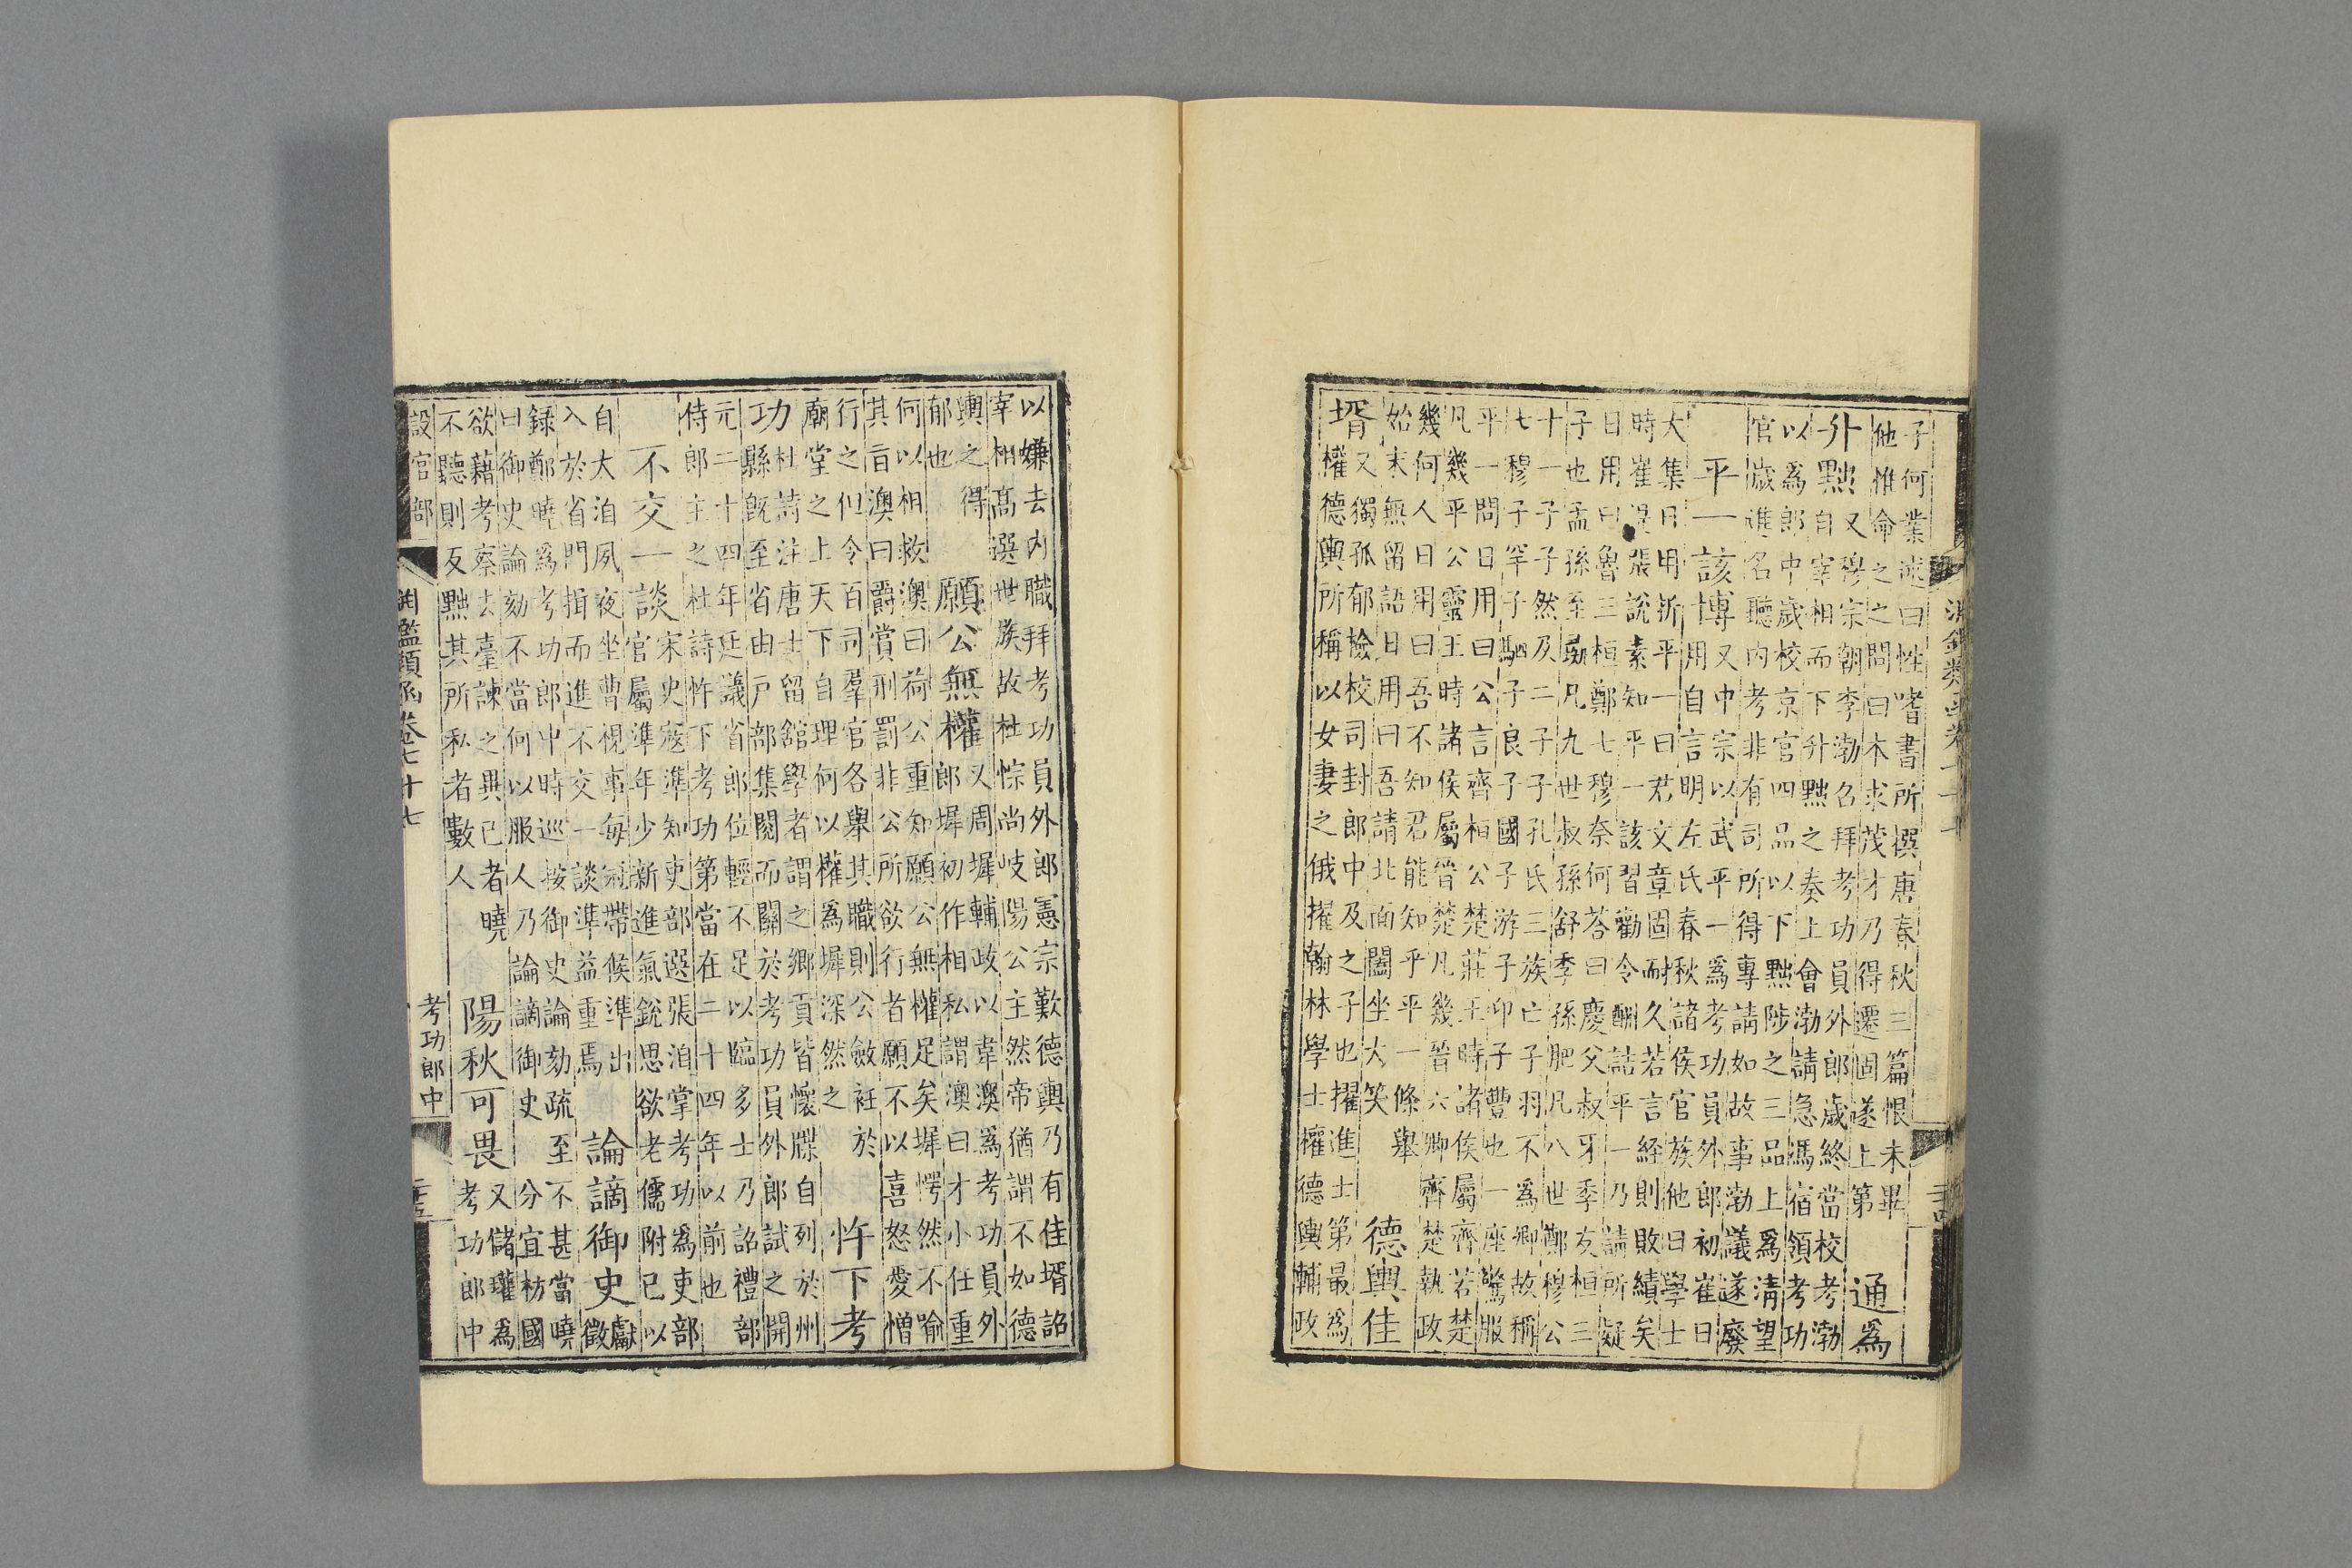 子何業述曰性嗜書所撰唐春秋三篇恨未畢
他惟命之之問曰本求茂才乃得遷固遂上第
通為
升黜
又穆宗朝李渤召拜考功員外郎歲終當校考渤
自宰相而下升黜之奏上會渤請急馮宿領考功
以為郎中歲校京官四品以下黜陟之三品上為清望
官歲進名聽內考非有司所得專請如故事渤議遂廢
平一該博
又中宗以武平一為考功員外郎初崔日
用自言明左氏春秋諸侯官族他日學士
大集日用折平一曰君文章固耐久若言經則敗績矣
時崔湜張說素知平一該習勸令酬詰平一乃請所疑
日用曰魯三桓鄭七穆奈何荅曰慶父叔牙季友桓三
子也孟孫至彘凡九世叔孫舒季孫肥凡八世鄭穆公
十一子子然及二子子孔氏三族亡子羽不為卿故稱
七穆子罕子駟子良子國子游子印子豐也一座驚服
平一問日用曰公言齊桓公楚莊王時諸侯屬齊若楚
凡幾平公靈王時諸侯屬晉楚凡幾晉六卿齊楚執政
幾何人日用曰吾不知君能知乎平一條舉
始末無留語日用曰吾請北面闔坐大笑
德輿佳
壻
又獨孤郁檢校司封郎中及之子也擢進士第最為
權德輿所稱以女妻之俄擢翰林學士權德輿輔政
以嫌去內職拜考功員外郎憲宗歎德輿乃有佳壻詔
宰相高選世族故杜悰尚岐陽公主然帝猶謂不如德
輿之得
郁也
願公無權
又周墀輔政以韋澳為考功員外
郎墀初作相私謂澳曰才小任重
何以相救澳曰荷公重知願公無權足矣墀愕然不喻
其旨澳曰爵賞刑罰非公所欲行者願不以喜怒愛憎
行之但令百司羣官各舉其職則公斂衽於
廟堂之上天下自理何以權為墀深然之
忤下考
功
杜詩注唐士留館學者謂之鄉貢皆懷牒自列於州
縣既至省由戶部集閱而關於考功員外郎試之開
元二十四年廷議省郎位輕不足以臨多士乃詔禮部
侍郎主之杜詩忤下考功第當在二十四年以前也
不交一談
宋史寇準知吏部選張洎掌考功為吏部
官屬準年少新進氣銳思欲老儒附己以
自大洎夙夜坐曹視事每冠帶候準出
入於省門揖而進不交一談準益重焉
論謫御史
獻
徵
録鄭曉為考功郎中時巡按御史論劾疏至不甚當曉
曰御史論劾不當何以服人乃論謫御史分宜枋國
欲藉考察去臺諫之異己者曉
不聽則反黜其所私者數人
陽秋可畏
又儲瓘為
考功郎中
設官部
淵鑑類函卷七十七
考功郎中
二十五